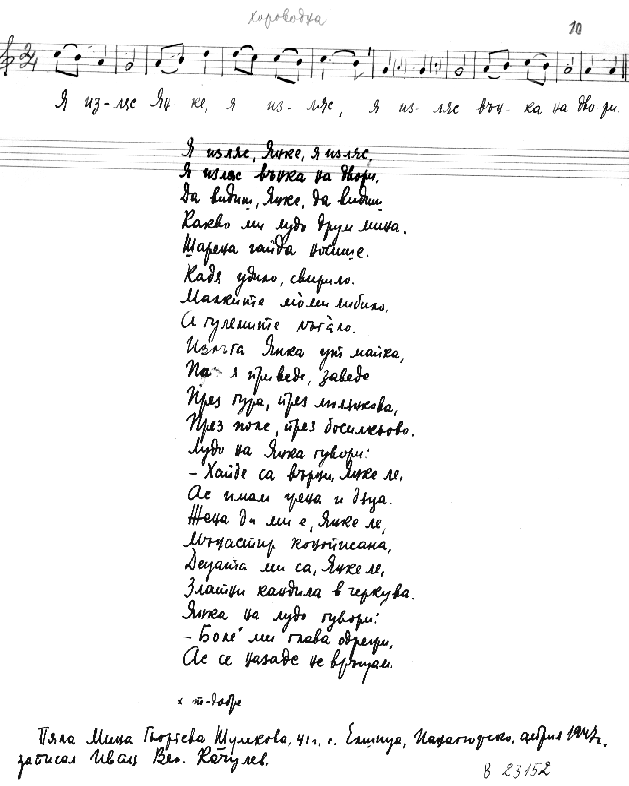 хороводна
10
2/4
Я из-ляс Ян ке, я из-ляс, я из-ляс вън-ка на дво ри.
Я изляс, Янке, я изляс,
Я изляс вънка на двори,
Да видиш, Янке, да видиш
Какво ми лудо друм мина.
Шарена гайда носише.
Кадя удило, свирило.
Малките моми либило,
А гулемите лъгало.
Излъга Янка ут майка,
Па я приведе, заведе
През гура, през лилякова,
През поле, през босильково.
Лудо на Янка гувори:
– Хайде са върни, Янке ле,
Ас имам жена и дица.
Жена да ми е, Янке ле,
Монастир конописана,
Децата ми са, Янке ле,
Златни кандила в черкува.
Янка на лудо гувори:
– Боле ми глава одрежи,
Ас се назаде не връщам.
x по-добре
Пяла Мина Георгева Шулекова, 41 г. с. Елшица, Панагюрско, април 1947 г.
записал Иван Вел. Качулев.
В 23152